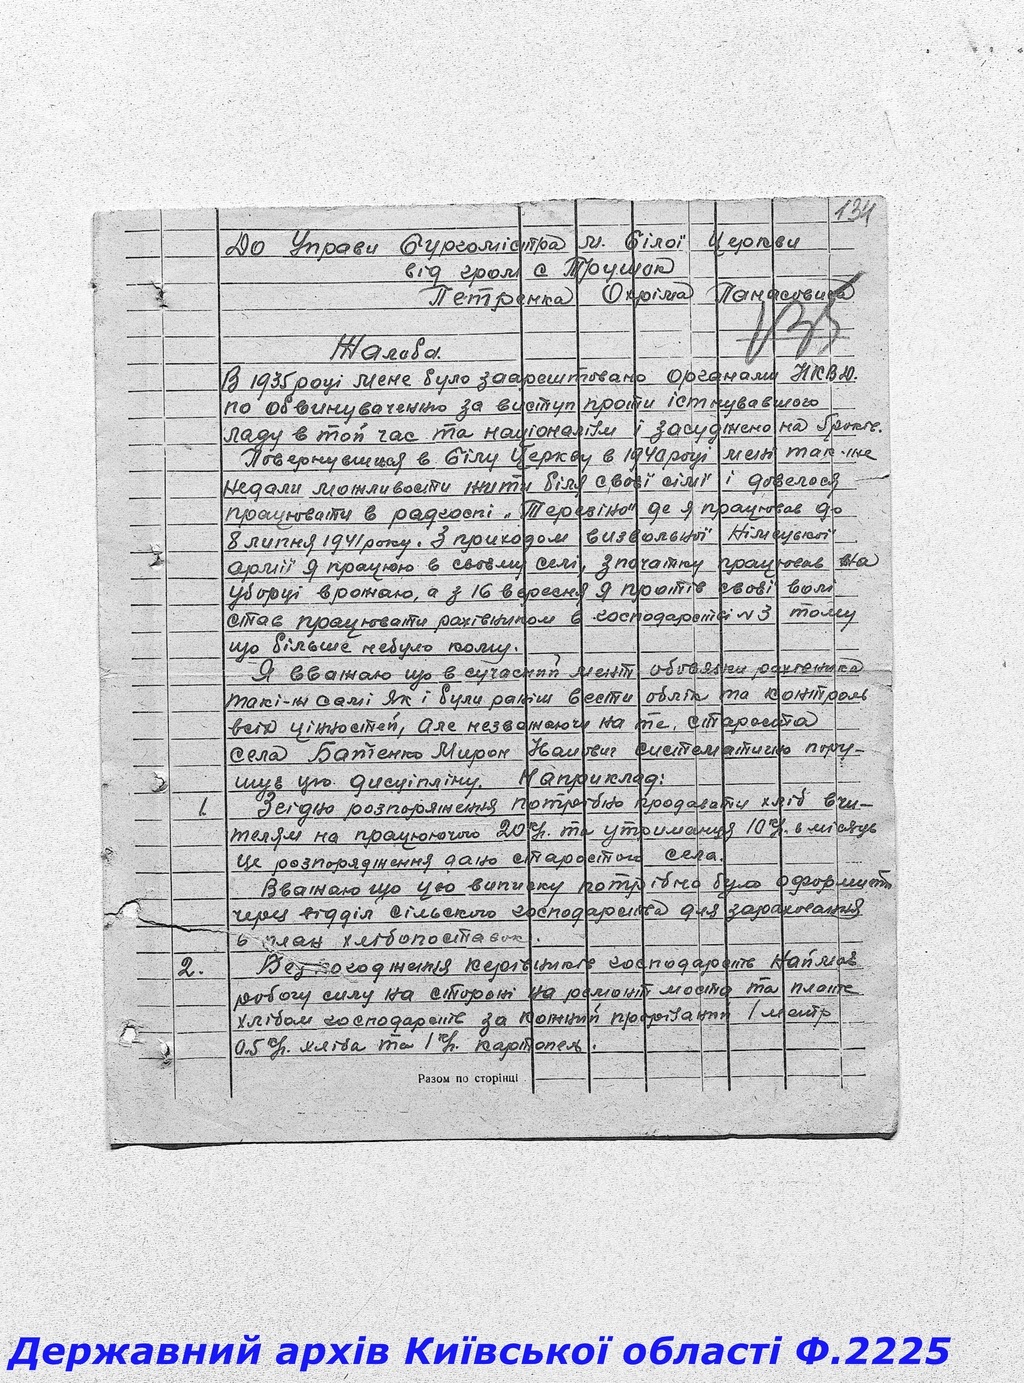 134
До Управи Бургомістра м. Білої Церкви
від гром с Трушок
Петренка Охріма Панасовича
Жалоба.
В 1935 році мене було заарештовано органами НКВД.
по обвинуваченню за виступ проти існувавшого
ладу в той час та націоналізм і засуджено на 5 років.
Повернувшися в Білу Церкву в 1940 році мені так-же
недали можливости жити біля своєї сімї і довелося
працювати в радгоспі „Терезіно" де я працював до
8 липня 1941 року. З приходом визвольної Німецької
армії я працюю в своєму селі, зпочатку працював на
уборці врожаю, а з 16 вересня я протів свої волі
став працювати рахівником в господарстві № 3 тому
що більше небуло кому.
Я вважаю що в сучасний мент обовязки рахівника
такі-ж самі як і були раніш вести облік та контроль
всіх ціностей, але незважаючи на те, староста
села Батенко Мирон Іванович систематично пору-
шує цю дисципліну. Наприклад:
1. Згідно розпорядження потрібно продавати хліб вчи-
телям на працюючого 20 кг. та утриманця 10 кг. в місяць
це розпорядження дано старостою села.
Вважаю що цю виписку потрібно було оформить
через відділ сільского господарства для зарахования
в план хлібопоставок.
2. Без погодження керівників господарств наймає
робочу силу на стороні на ремонт моста та плате
хлібом господарств за кожний прорізаний 1 метр
0.5 кг. хліба та 1 кг. картопель.
Разом по сторінці
Державний архів Київської області Ф.2225